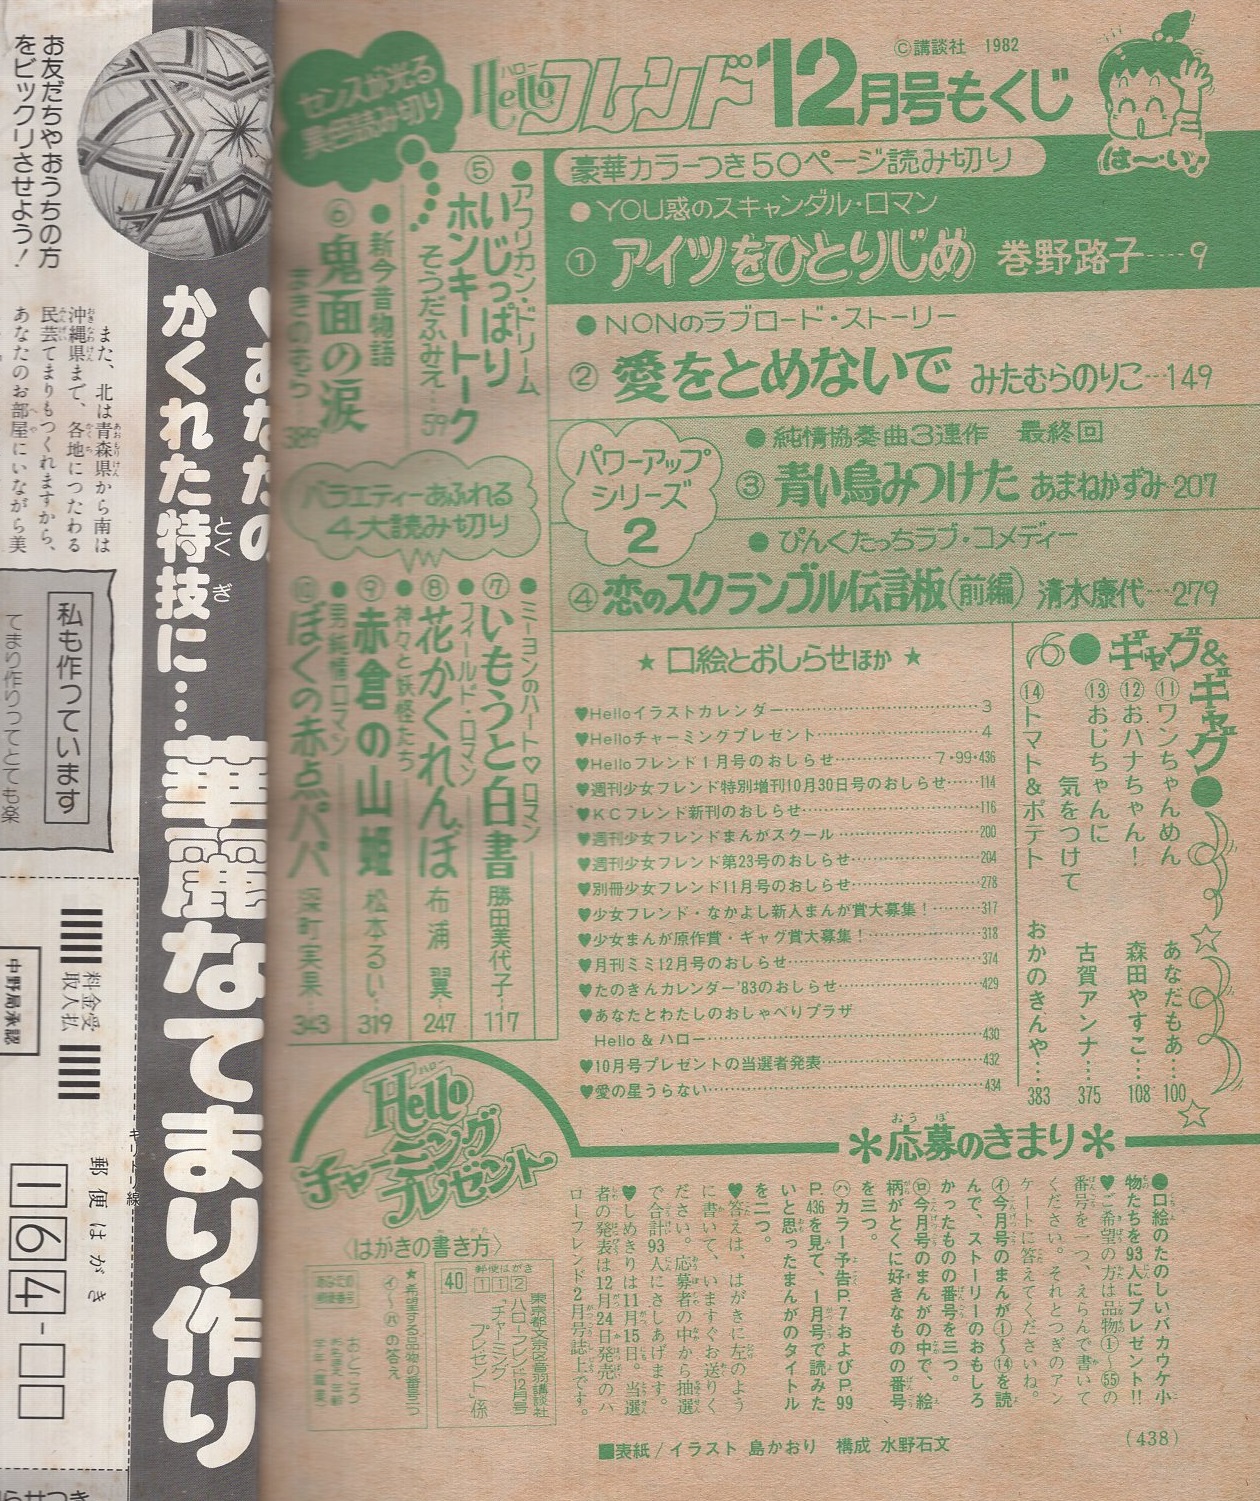 ©講談社 1982
Helloフレンド12月号もくじ
ハロー
は〜い!
豪華カラーつき50ページ読み切り
●YOU惑のスキャンダル・ロマン
①アイツをひとりじめ 巻野路子……9
●NONのラブロード・ストーリー
②愛をとめないで みたむらのりこ…149
パワーアップ
シリーズ
2
●純情協奏曲3連作 最終回
③青い鳥みつけた あまねかずみ…207
●ぴんくたっちラブ・コメディー
④恋のスクランブル伝言板(前編) 清水康代…279
センスが光る
異色読み切り
●アフリカン・ドリーム
⑤いじっぱり
ホンキートーク
そうだふみえ…59
●新今昔物語
⑥鬼面の涙
まきのむら
389
バラエティーあふれる
4大読み切り
●ミーヨンのハート♡ロマン
⑦いもうと白書 勝田美代子…117
●フィールド・ロマン
⑧花かくれんぼ 布浦翼…247
●神々と妖怪たち
⑨赤倉の山姫 松本るい…319
●男純情ロマン
⑩ぼくの赤点パパ 深町実果…343
●ギャグ&ギャグ●
⑪ワンちゃんめん あなだもあ…100
⑫おハナちゃん! 森田やすこ…108
⑬おじちゃんに
気をつけて 古賀アンナ…375
⑭トマト&ポテト おかのきんや…383
★口絵とおしらせほか★
♥Helloイラストカレンダー……3
♥Helloチャーミングプレゼント……4
♥Helloフレンド1月号のおしらせ……7・99・436
♥週刊少女フレンド特別増刊10月30日号のおしらせ……114
♥KCフレンド新刊のおしらせ……116
♥週刊少女フレンドまんがスクール……200
♥週刊少女フレンド第23号のおしらせ……204
♥別冊少女フレンド11月号のおしらせ……278
♥少女フレンド・なかよし新人まんが賞大募集!……317
♥少女まんが原作賞・ギャグ賞大募集!……318
♥月刊ミミ12月号のおしらせ……374
♥たのきんカレンダー'83のおしらせ……429
♥あなたとわたしのおしゃべりプラザ
Hello & ハロー……430
♥10月号プレゼントの当選者発表……432
♥愛の星うらない……434
Hello
ハロー
チャーミング
プレゼント
*応募のきまり*
●口絵のたのしいバカウケ小
物たちを93人にプレゼント!!
♥ご希望の方は品物①〜㊺の
番号を一つ、えらんで書いて
ください。それとつぎのアン
ケートに答えてくださいね。
㋑今月号のまんが①〜⑭を読
んで、ストーリーのおもしろ
かったものの番号を三つ。
㋺今月号のまんがの中で、絵
柄がとくに好きなものの番号
を三つ。
㋩カラー予告P.7およびP.99
P.436を見て、1月号で読みた
いと思ったまんがのタイトル
を二つ。
♥答えは、はがきに左のよう
に書いて、いますぐお送りく
ださい。応募者の中から抽選
で合計93人にさしあげます。
♥しめきりは11月15日。当選
者の発表は12月24日発売のハ
ローフレンド2月号誌上です。
〈はがきの書き方〉
40
郵便はがき
112
東京都文京区音羽講談社
ハローフレンド12月号
「チャーミング
プレゼント」係
★希望する品物の番号一つ
㋑〜㋩の答え
おところ
■表紙/イラスト 島かおり 構成 水野石文
(438)
お友だちやおうちの方
をビックリさせよう!
♥あなたの
かくれた特技に…
華麗なてまり作り
また、北は青森県から南は
沖縄県まで、各地につたわる
民芸てまりもつくれますから、
あなたのお部屋にいながら美
私も作っています
てまり作りってとても楽
料金受
取人払
中野局承認
キリトリ線
郵便はがき
164-□□